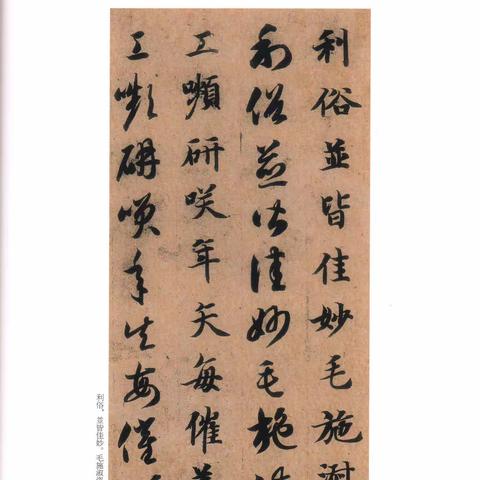 利俗並皆佳妙毛施淑
利俗並皆佳妙毛施
工嚬研咲年矢每催
工嚬研咲年矢每催
利俗，並皆佳妙。毛施淑姿